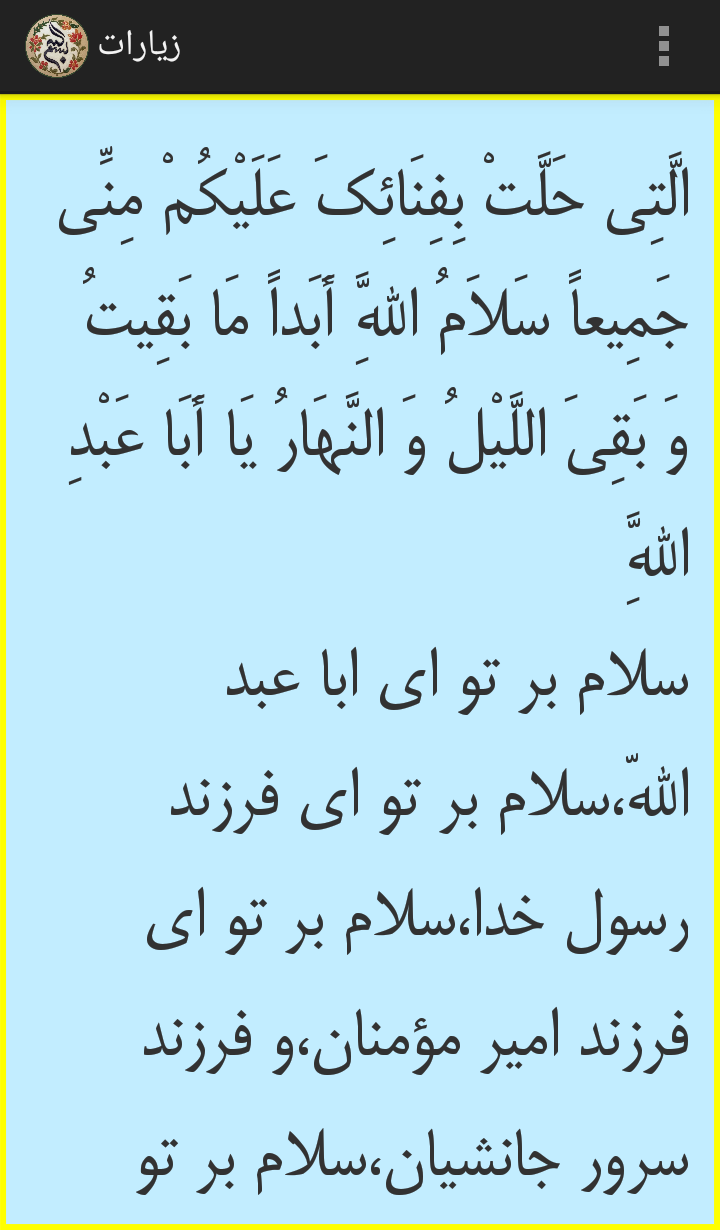 زیارات
الَّتِی حَلَّتْ بِفِنَائِکَ عَلَیْکُمْ مِنِّی
جَمِیعاً سَلاَمُ اللَّهِ أَبَداً مَا بَقِیتُ
وَ بَقِیَ اللَّیْلُ وَ النَّهَارُ یَا أَبَا عَبْدِ
اللَّهِ
سلام بر تو ای ابا عبد
اللّه،سلام بر تو ای فرزند
رسول خدا،سلام بر تو ای
فرزند امیر مؤمنان،و فرزند
سرور جانشیان،سلام بر تو